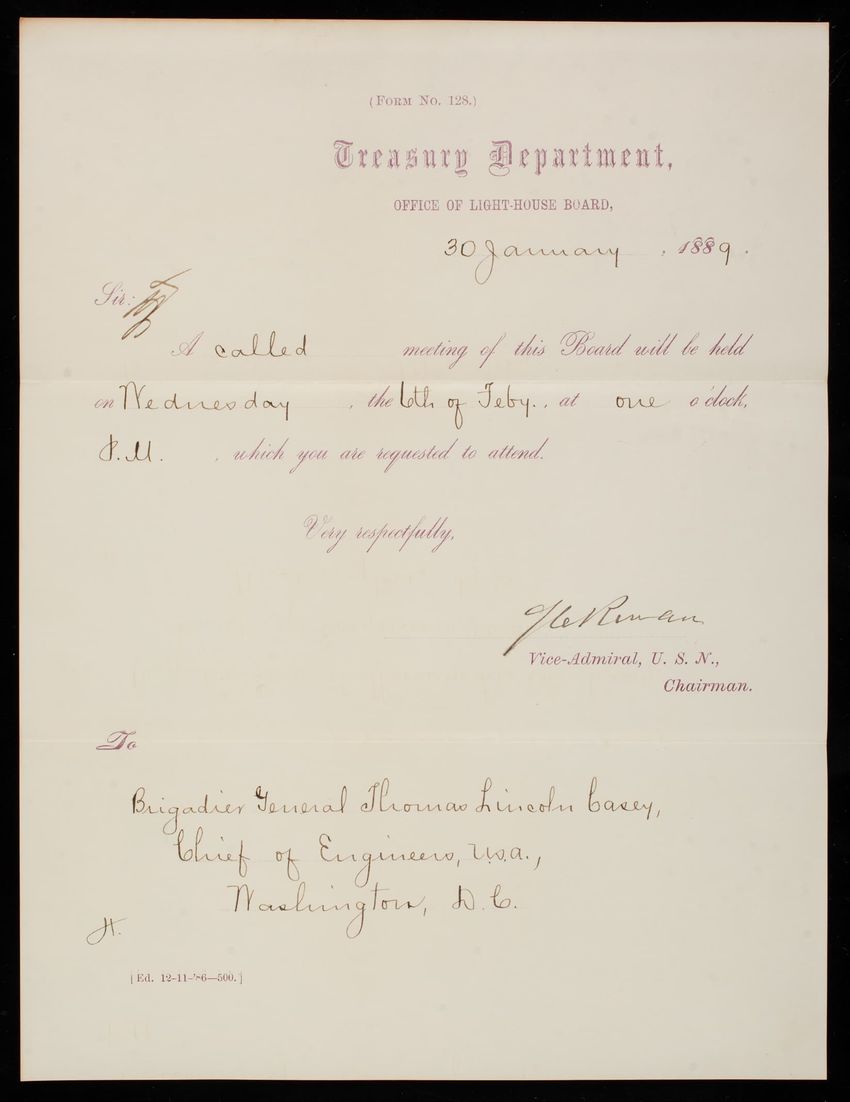 (FORM No. 128.)
Treasury Department,
OFFICE OF LIGHT-HOUSE BOARD,
30 January, 1889.
Sir:
A called meeting of this Board will be held
on Wednesday, the 6th of Feby., at one o'clock,
P.M., which you are requested to attend.
Very respectfully,
Rowan
Vice-Admiral, U. S. N.,
Chairman.
To
Brigadier General Thomas Lincoln Casey,
Chief of Engineers, U.S.A.,
Washington, D.C.
H.
[Ed. 12-11-'86—500.]